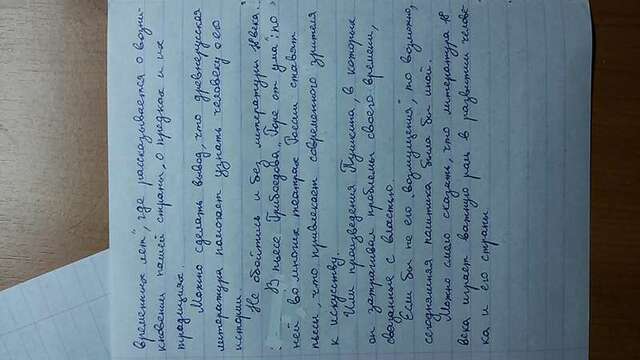 временных лет", где рассказывается о возни-
кновении нашей страны, о предках и их
традициях.
Можно сделать вывод, что древнерусская
литература помогает узнать человеку о его
истории.
Не обойтись и без литературы 18 века.
В пьесе Грибоедова „Горе от ума", по
ней во многих театрах России ставят
пьесы, что привлекает современного зрителя
к искусству.
Или произведения Пушкина, в которых
он затрагивал проблемы своего времени,
связанные с властью.
Если бы не его „возмущения", то возможно,
сегодняшняя политика была бы иной.
Можно смело сказать, что литература 18
века играет важную рол в развитии челове-
ка и его страны